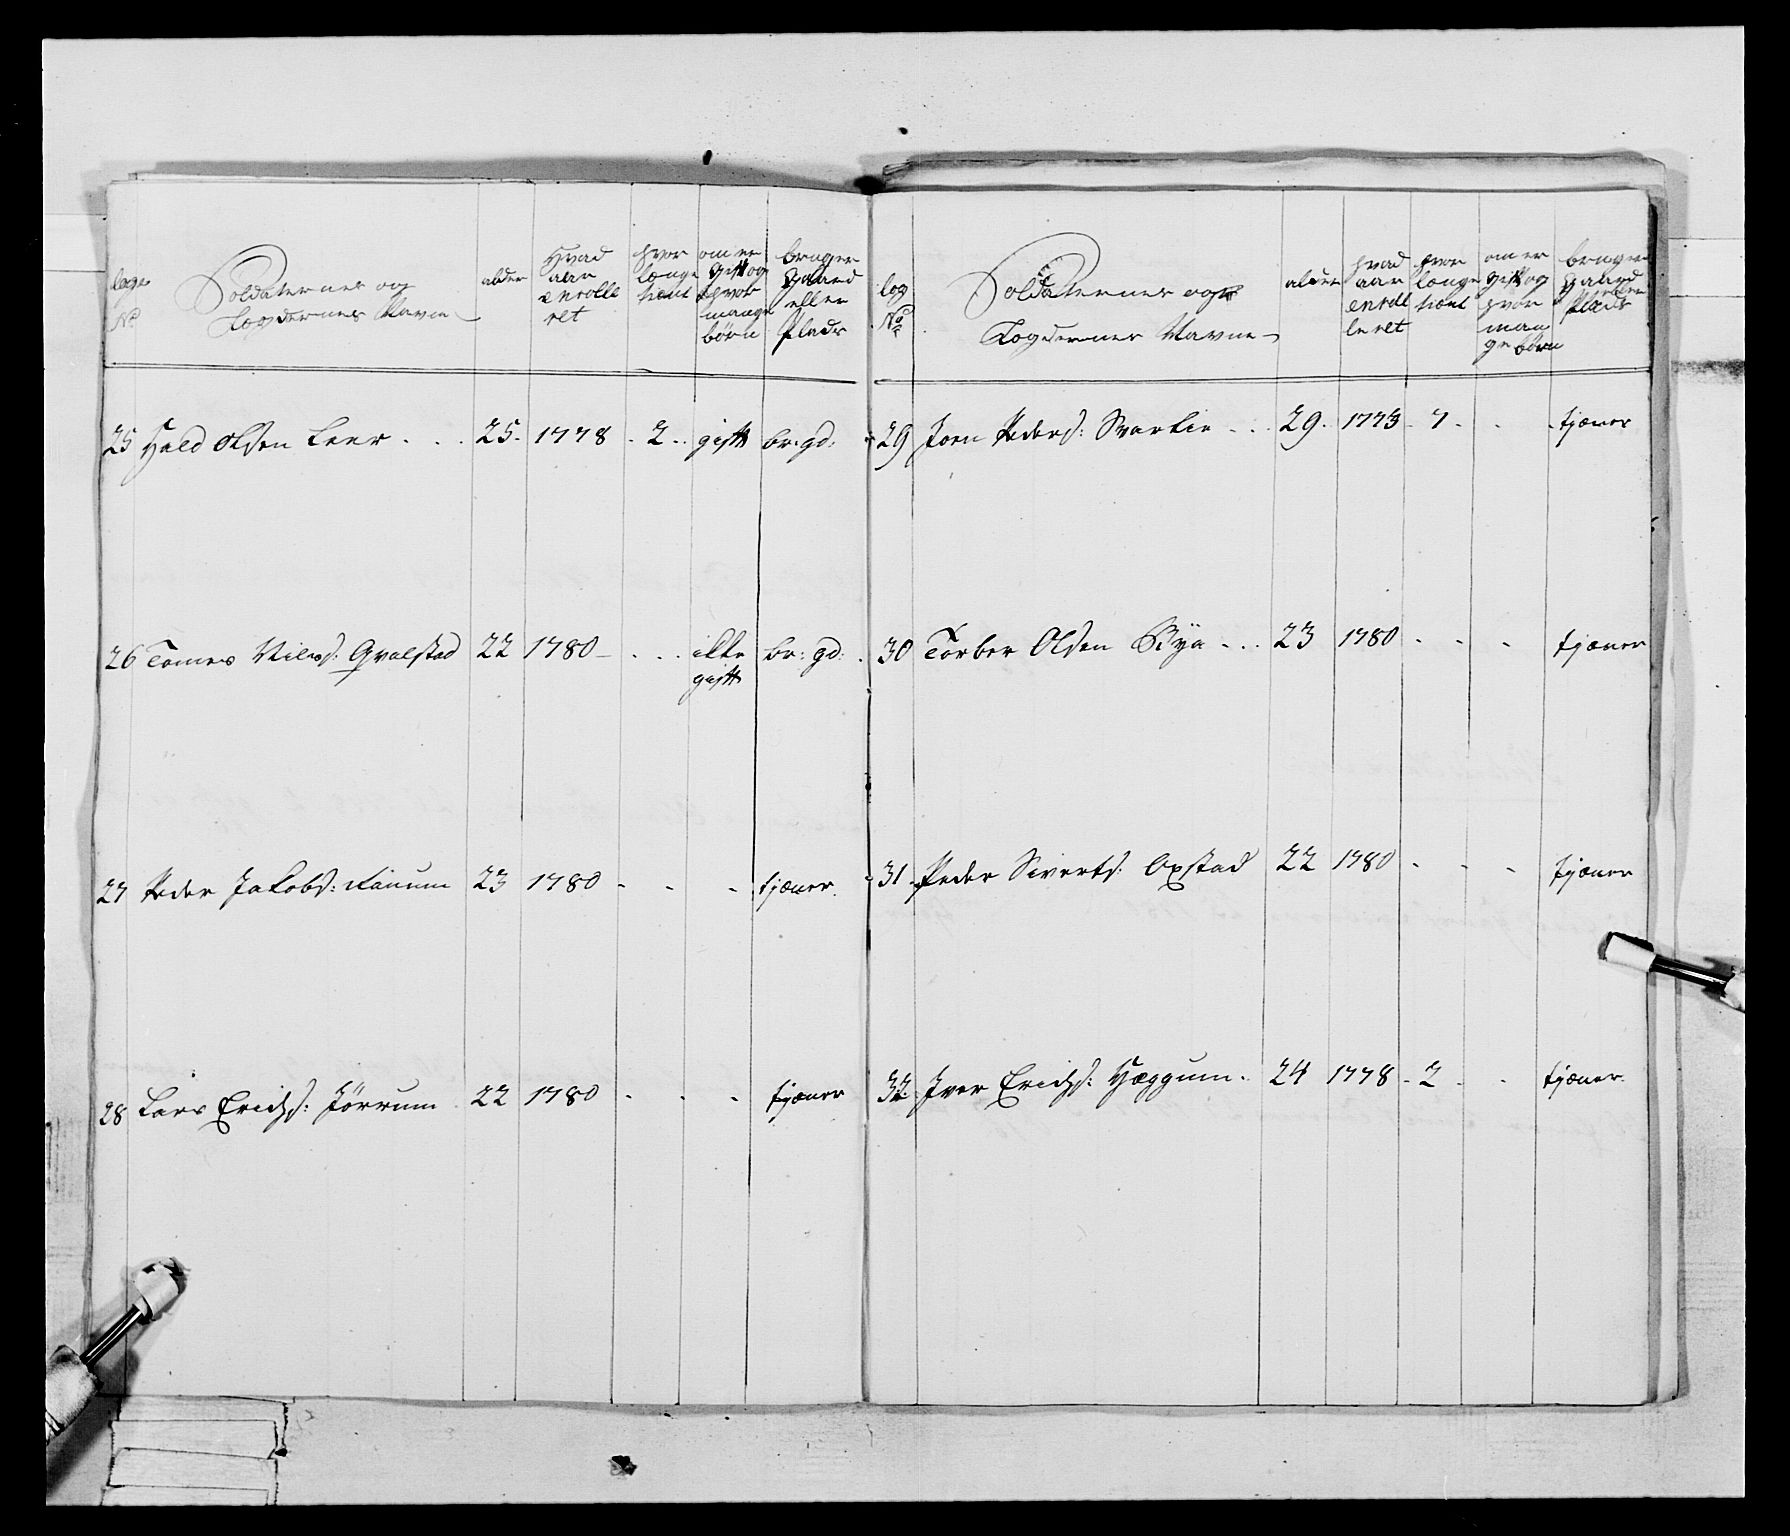 lægs No Soldaternes og Lægdernes Navne alder Hvad aar enrolleret hvor længe tient om er gift og hvor mange børn bruger gaard eller Plads
25 Hald Olsen Leer . . . 25. 1778 . 2 . . gift br: gd:
26 Tomes Nilss: Qvalstad 22 1780 - . . . ikke gift br: gd:
27 Peder Jakobs: Fanum 23 1780 - - - tjæner
28 Lars Erichs: Jørrum 22 1780 - - - tjæner
læg No Soldaternes og Lægdernes Navne alder hvad aar enrolleret hvor længe tient om er gift og hvor mange børn bruger gaard eller Plads
29 Joen Peders: Svarlie . . . 29. 1773 - 7 - - - tjæner
30 Torber Olsen Bya . . . 23 1780 - - - tjæner
31. Peder Siverts: Oxstad 22 1780 - - - tjæner
32. Iver Erichs: Hæggum. 24 1778 . 2 . . tjæner